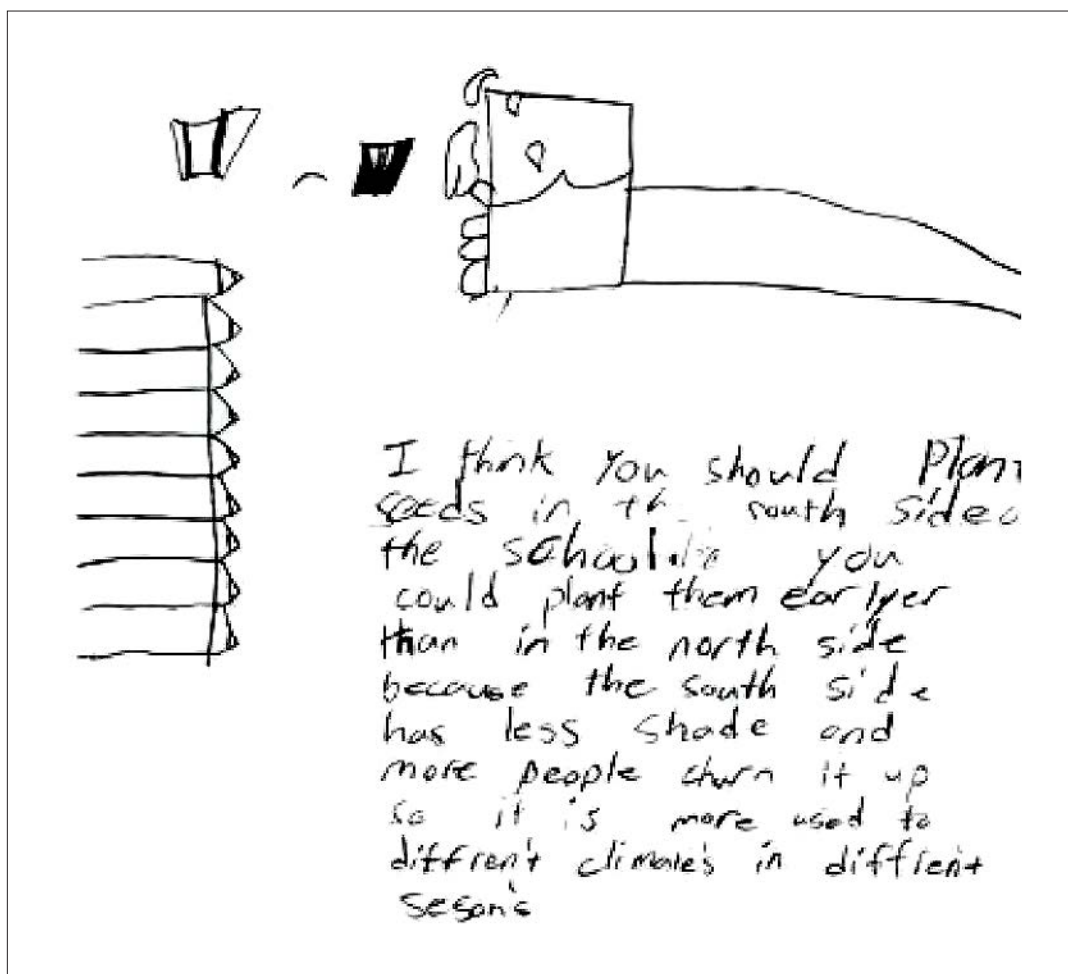 I think you should Plant
seeds in th south side
the school. you
could plant them earlyer
than in the north side
because the south side
has less shade and
more people churn it up
so it is more used to
diffrent climate's in diffrent
seson's